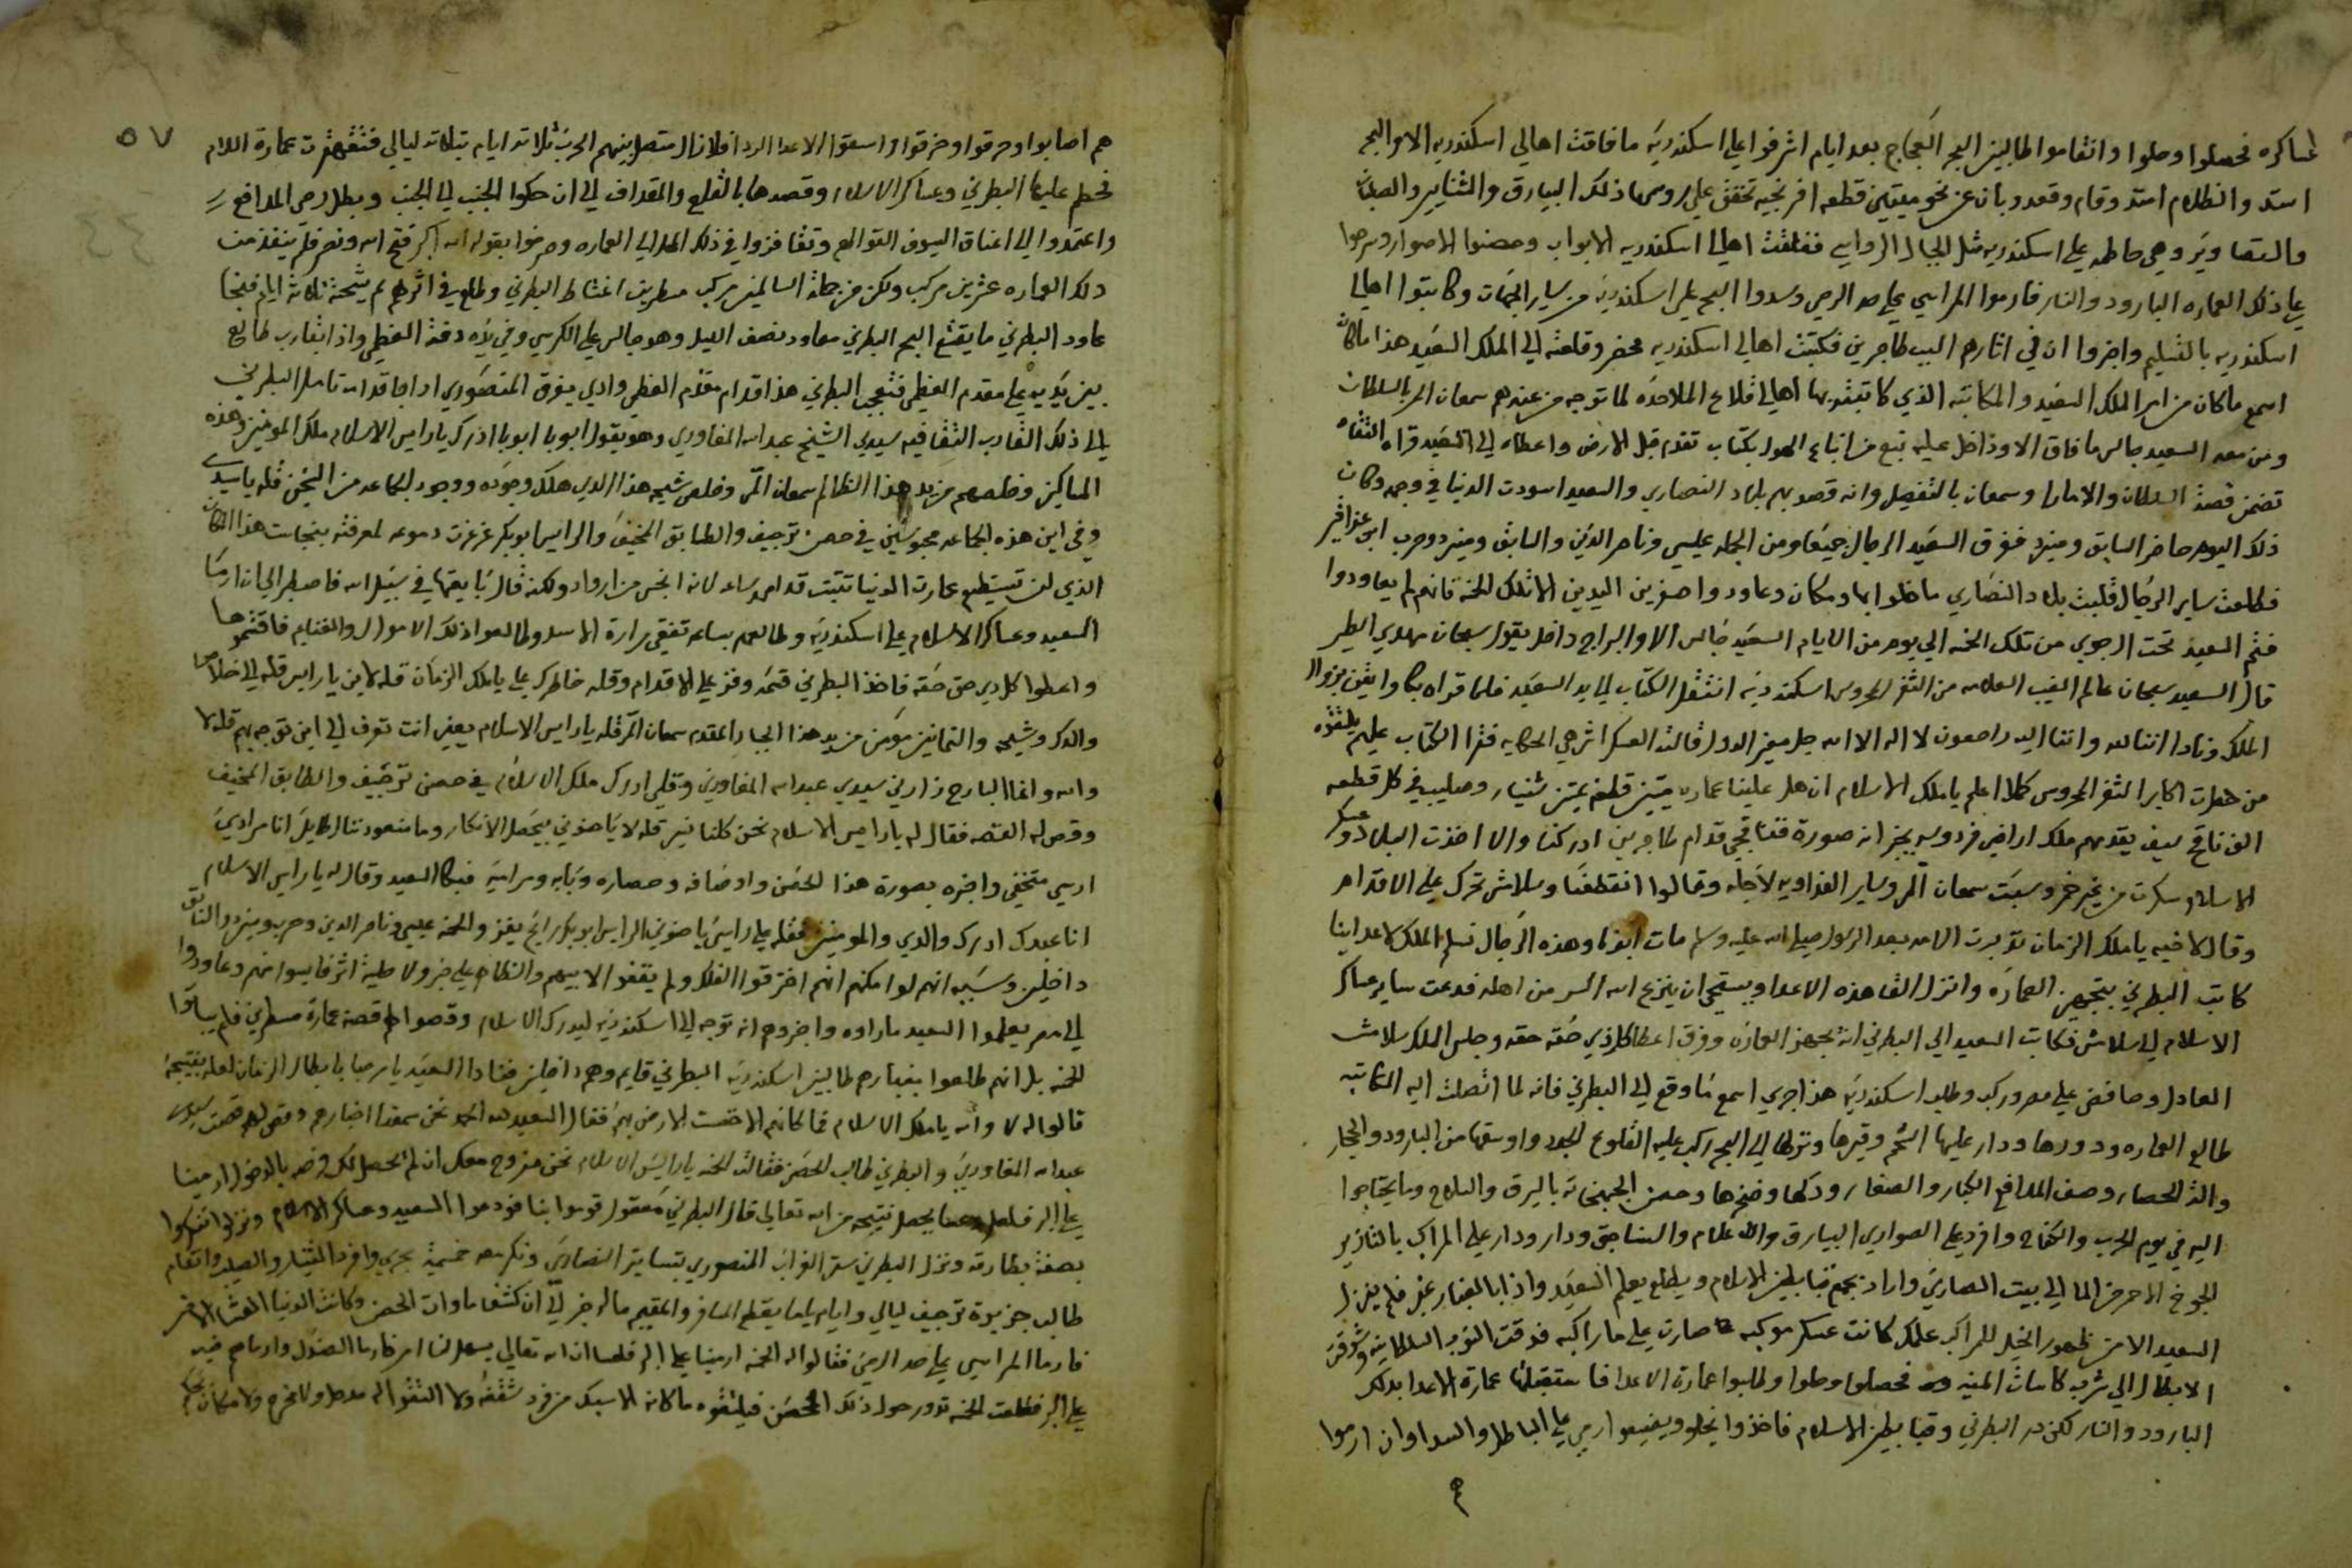 عساكره فحصلوا وحلوا وانقاموا طالبين البحر العجاج بعد ايام اشرفوا على اسكندريه ما فاقت اهالي اسكندريه الا والبحر
استد والظلام امتد وقام وقعد وبان عن نحو ميتين قطعه افرنجيه تخفق على روس ذلك البيارق والشنايير والصلبان
والتصاوير وهي حاطه على اسكندريه مثل الجبال الرواسي فغلقت اهل اسكندريه الابواب وحصنوا الاصوار
على ذلك العماره البارود والنار فارموا المراسي على حد الرمي وسدوا البحر على اسكندريه من ساير الجهات وكاتبوا اهالي
اسكندريه بالتسليم واخبروا ان في اثارهم البب طاجرين فكتبت اهالي اسكندريه محضر وقلعته الي الملك السعيد هذا ما كان
اسمع ما كان من امر الملك السعيد والمكاتبه الذي كاتبتو بها اهالي قلاع الملاحده لما توجه من عندهم سمعان الى السلطان
ومن معه السعيد جالس ما فاق الا وداخل عليه تبع من اتباع بكتاب تقدم قبل الارض واعطاه الى السعيد قراه التقاه
تضمن قصة السلطان والامارا وسمعان بالتفصيل وانه قصد بهم بلاد النصاري والسعيد اسودت الدنيا في وجهه وكان
ذلك اليوم حاضر السابق ومنير ففرق السعيد الرجال جميعا ومن الجمله عيسى وناصر الدين والسابق ومنير وحرب
فطلعت ساير الرجال قلبت بلاد النصاري ما خلوا بها ومكان وعاودوا صفرين اليدين الا تلك الخنه فانهم لم يعاودوا
فتم السعيد تحت الرجوي من تلك الخنه الي يوم من الايام السعيد جالس الا والبراج داخل يقول سبحان مهدي الطير
قال السعيد سبحان عالم الغيب من الثغر المحروس اسكندريه انتقل الكتاب الي يد السعيد فلما قراه بكا وايقن بزوال
الملك ونادا اننا لله واننا اليه راجعون لا اله الا الله جل مغير الدول قالت العسكر اش هي الحكايه فقرا الكتاب عليهم يلتقوه
من حضرت اكابر الثغر المحروس كملا اعلم يا ملك الاسلام ان هل علينا عماره ميتين قلعه بميتين شنيار وصليب في كل قطعه
الف نافخ سيف يقدمهم ملك اراضي فردوسه صورة قدام طاجرين ادركنا والا اخذت البلاد
الاسلام سكرت من غير خمر وسبت سمعان المر وساير الفداويه لاجله وقالوا انقطفنا وسلامش تحرك على الاقدام
وقال لاخيه يا ملك الزمان تدبرت الامه بعد الرسول صلي الله عليه وسلم مات ابونا وهذه الرجال تسلم الملك لاعداينا
كاتب البطرني بتجهيز العماره وانزل القا هذه الاعدا ويستحي ان ينزع الله السر من اهله فدعت ساير عساكر
الاسلام الي سلامش فكاتب السعيد الي البطرني انه يجهز العماره وفرق اعطا كل ذي حقه حقه وجلس الملك سلامش
العادل وصافض علي مصر وركب وطلب اسكندريه هذا جري اسمع ما وقع الي البطرني فانه لما اتصلت اليه المكاتبه
طالع العماره ودورها ودار عليها الشحم وقيرها ونزلها الي البحر ركب عليه القلوع الجدد واوسقها من البارود والحجار
والة الحصار وصف المدافع الكبار والصغار ودكها وضخها وحصن الجبخانه باليرق والسلاح وما يحتاجوا
اليه في يوم الحرب والكفاح وافرد على الصواري البيارق والاعلام والسناجق ودار ودار علي المراكب بالتنازير
الجوخ الاحمر من الما الي بيت الصاري واراد يجمع قباطين الاسلام ويطلع يعلم السعيد واذا بالغبار غبر فلم ينزل
السعيد الا من ظهور الخيل للمراكب علمك كانت عسكر موكبه صارت على مراكبه فدقت النوب السلطانيه وشوقت
الابطال الي شرب كاسات المنيه فحصلوا وحلوا وطلبوا عمارة الاعدا فاستقبلتها عمارة الاعدا بدلك
البارود والنار لكن البطرني وقباطين الاسلام فاخذوا ويضيعوا رمي على الباطل والسدا وان ارموا
٥٧
هم اصابوا وحرقوا وخرقوا واسقوا الاعدا الردا فلا زال متصل بينهم الحرب ثلاته ايام بتلاته ليالي فتقهقرت عمارة اللام
فحطم عليها البطرني وعساكر الاسلام وقصدها بالقلع والمقداف الي ان حكوا الجنب الي الجنب وبطل رمي المدافع
واعتمدوا الي اعناق السيوف القواطع وتقافزوا في ذلك الى العماره وصرخوا بقول الله اكبر فتح الله ونصر فلم ينفذ من
ذلك العماره عشرين مركب ولكن من جملة السالمين مركب مسطرين اغتاظ البطرني وطلع في اثرهم ثلاثة ايام فنجا
عاود البطرني ما يقشع البحر البطرني معاود نصف الليل وهو جالس على الكرسي وفي يده دفة الغطي واذا بقارب طالع
بين يديه على مقدم الغطي فتعجب البطرني هذا قدام مقدم الغطي وادي بيرق المنصوري اداجا قدامه تامل البطرني
الى ذلك القارب التقا فيه سيدي الشيخ عبد الله المغاوري وهو يقول ابو با ابو با ادرك يا رايس الاسلام ملك المومنين وهذه
المساكين وخلصهم من يد هذا الظالم سمعان المر وخلص شيحه هذا الذي هلك وجوده ووجود الجماعه من السجن قله يا سيدي
وفي اين هذه الجماعه محبوسين في حصن ترجيف والطابق المخيف والرايس ابو بكر غرغرت دموعه لمعرفته بنجاست هذا المكان
الذي لن تستطيع عمارت الدنيا تثبت قدامه ساعه لانه انحس من ارواد ولكنه قال ما يعقها في سبيل الله فاصطبر الي ان ارسا
السعيد وعساكر الاسلام على اسكندريه وطالعهم بساعه تفقى مرارة الاسد وطالعوا ذلك الاموال والغنايم فاقتسموها
واعطوا كل دي حق حقه فاخذ البطرني قسمه وفز على الاقدام وقله خاطرك على يا ملك الزمان قله لاين يا رايس قله الي خلاص
والدك وشيحه والتمانين مومن من يد هذا الجبار المقدم سمعان المر قله يا رايس الاسلام يعني انت تعرف الي اين توجه بهم قله لا
والله وانما البارح زارني سيدي عبد الله المغاوري وقلي ادرك ملك الاسلام في حصن ترجيف والطابق المخيف
وقص له القصه فقال له يا رايس الاسلام نحن كلنا نسير قله لا يا ضوني بيحصل الانكار وما منعود ننال طايل انا مرادي
ارسي متخفي واخبره بصورة هذا الحصن واوصافه وحصاره وبابه ومراسيه فبكا السعيد وقال له يا رايس الاسلام
انا عبدك ادرك والدي والمومنين فقله على راسي يا ضوني الرايس ابو بكر رايح يفز والخنه عيسى وناصر الدين وحرب ومنير والسابق
داخلين وسببه انهم لوا مكنهم انهم اخترقوا الفلك ولم يقفوا لابيهم والنظام علي خبر ولا طلية اثر فايسوا منهم وعاودوا
الي مصر يعلموا السعيد ما راوه واخبروهم انه توجه الي اسكندريه ليدرك الاسلام وقصوا لهم قصة عمارة مسطرين فلم يباتوا
الخنه بل انهم طلعوا بغبارهم طالبين اسكندريه البطرني قايم وهم داخلين فنادا السعيد يا مرحبا بابطال الزمان لعله بنتيجه
قالوا له لا والله يا ملك الاسلام فما كانهم الا اختست الارض بهم فقال السعيد لله الحمد نحن سمعنا اخبارهم وقص لهم قصت سيدي
عبد الله المغاوري والبطرني طالب الحصن فقالت الخنه يا رايس الاسلام نحن منروح معك ان لم تحصل لك فرصه بالدخول ارمينا
على البر فلعل يحصل نتيجه من الله تعالى قال البطرني معقول قوموا بنا فودعوا السعيد وعساكر الاسلام ونزلوا
بصفة بطارقه ونزل البطرني ستر الغراب المنصوري بتساتير النصاري ونكر معه خمسمية بحري وافرد الشنيار والصليب واتقام
طالب جزيرة ترجيف ليالي وايام ياما يقطع المسافر والمقيم ما له خبر الي ان كشف ماوات الحصن وكانت الدنيا العشا الاخر
فارما المراسي على حد الرمي فقالوا له الخنه ارمينا على البر فلعسا ان الله تعالى يسهل لنا امر فارسا الصندل وارماهم فيه
على البر فطلعت الخنه تدور حول ذلك الحصن فيلتقوه ما كانه الا سبك من فرد شقفه ولا التقوا له مدخل ولا مخرج ولا مكان